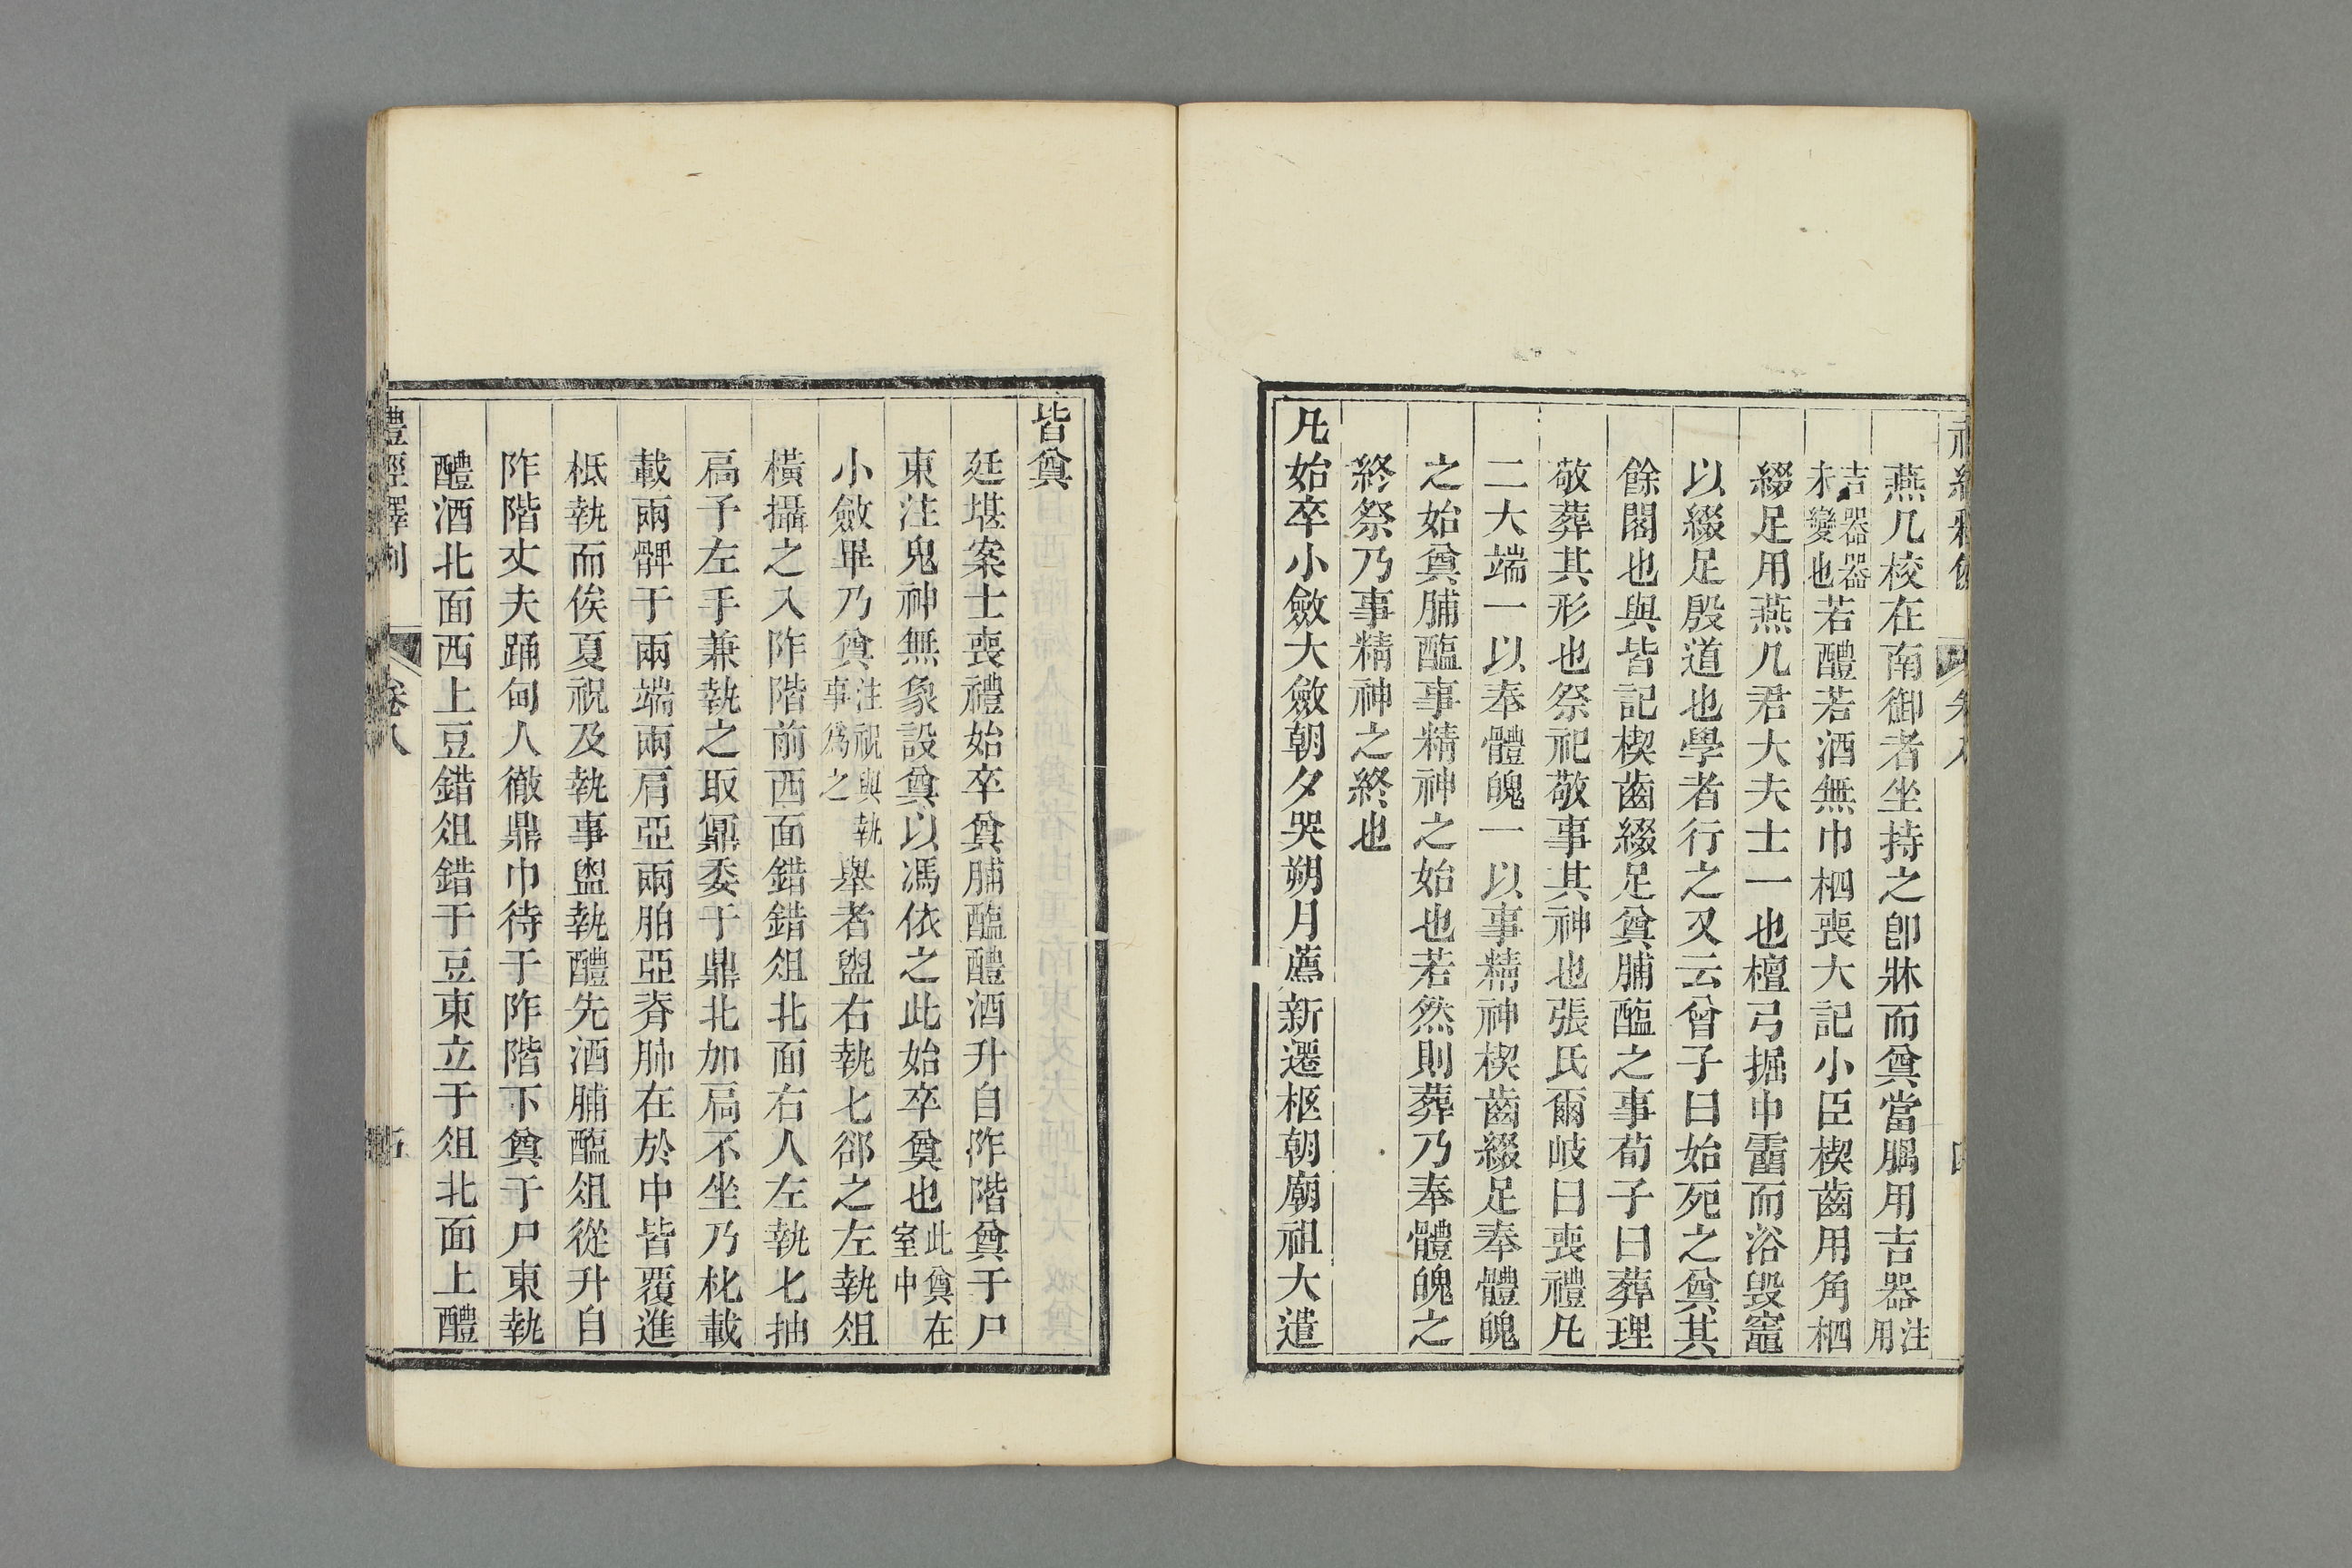 燕几校在南御者坐持之卽牀而奠當腢用吉器注用
吉器器未變也若醴若酒無巾柶喪大記小臣楔齒用角柶
綴足用燕几君大夫士一也檀弓掘中霤而浴毀竈
以綴足殷道也學者行之又云曾子曰始死之奠其
餘閣也與皆記楔齒綴足奠脯醢之事荀子曰葬理
敬葬其形也祭祀敬事其神也張氏爾岐曰喪禮凡
二大端一以奉體魄一以事精神楔齒綴足奉體魄
之始奠脯醢事精神之始也若然則葬乃奉體魄之
終祭乃事精神之終也
凡始卒小斂大斂朝夕哭朔月薦新遷柩朝廟祖大遣
皆奠
廷堪案士喪禮始卒奠脯醢醴酒升自阼階奠于尸
東注鬼神無象設奠以馮依之此始卒奠也此奠在室中
小斂畢乃奠注祝與執事爲之舉者盥右執匕郤之左執俎
橫攝之入阼階前西面錯錯俎北面右人左執匕抽
扃予左手兼執之取鼏委于鼎北加扃不坐乃朼載
載兩髀于兩端兩肩亞兩胉亞脊肺在於中皆覆進
柢執而俟夏祝及執事盥執醴先酒脯醢俎從升自
阼階丈夫踊甸人徹鼎巾待于阼階下奠于尸東執
醴酒北面西上豆錯俎錯于豆東立于俎北面上醴
禮經釋例 卷八 五